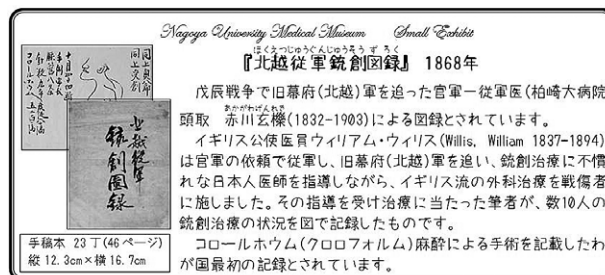 Nagoya University Medical Museum Small Exhibit
ほくえつじゅうぐんじゅうそうずろく
『北越従軍銃創図録』 1868年
戊辰戦争で旧幕府(北越)軍を追った官軍一従軍医(柏崎大病院
あかがわげんれき
頭取 赤川玄櫟(1832-1903)による図録とされています。
イギリス公使医官ウィリアム・ウィリス(Willis, William 1837-1894)
は官軍の依頼で従軍し、旧幕府(北越)軍を追い、銃創治療に不慣
れな日本人医師を指導しながら、イギリス流の外科治療を戦傷者
に施しました。その指導を受け治療に当たった筆者が、数10人の
銃創治療の状況を図で記録したものです。
コロールホウム(クロロフォルム)麻酔による手術を記録したわ
が国最初の記録とされています。
北越従軍
銃創図録
手稿本 23丁(46ページ)
縦 12.3cm×横 16.7cm